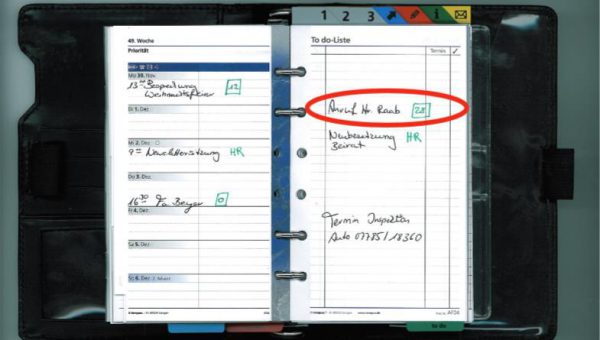 49. Woche
Priorität
Mo 30. Nov.
13 Besprechung [12]
Weihnachtsfeier
Di 1. Dez.
Mi 2. Dez.
9 Newslettersitzung HR
Do 3. Dez.
16 30 Fa. Beyer [0]
Fr 4. Dez.
Sa 5. Dez.
So 6. Dez. 2. Advent
1 2 3 i
To do-Liste
Termin ✓
Anruf Hr. Raab [28]
Neubesetzung HR
Beirat
Termin Inspektion
Auto 07785/18360
to do